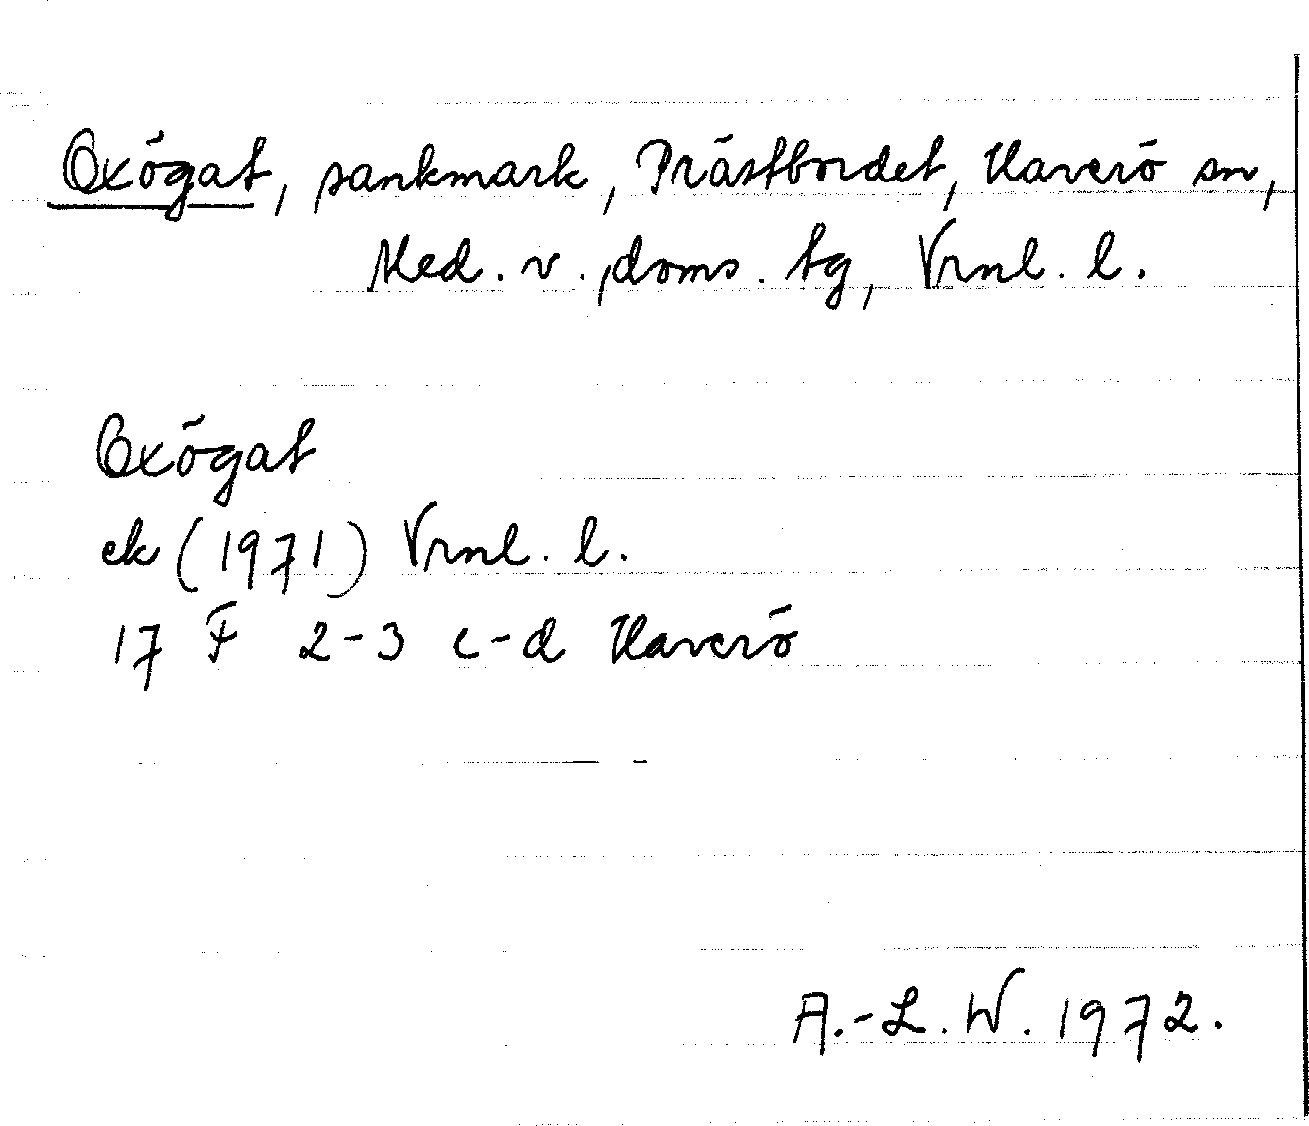 Oxögat, sankmark, Prästbordet, Haverö sn,
Med. v. doms. tg, Vrnl. l.
Oxögat
ek (1971) Vrnl. l.
17 F 2-3 c-d Haverö
A.-L. W. 1972.